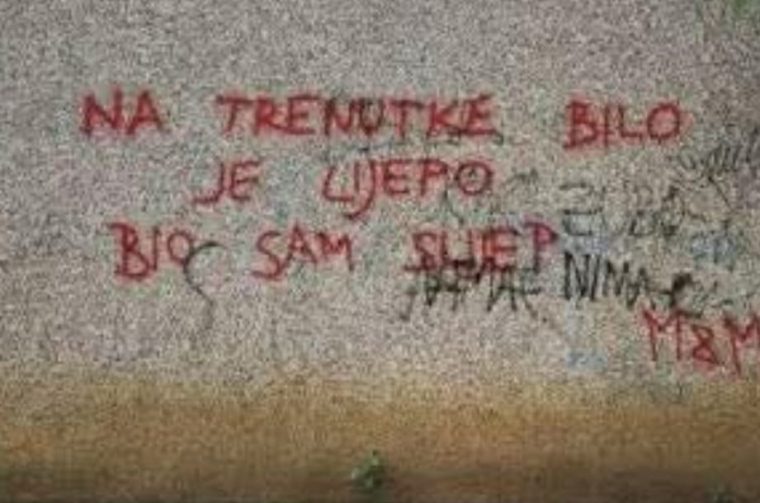 NA TRENUTKE BILO
JE LIJEPO
BIO SAM SLIJEP
NIMA
M&M